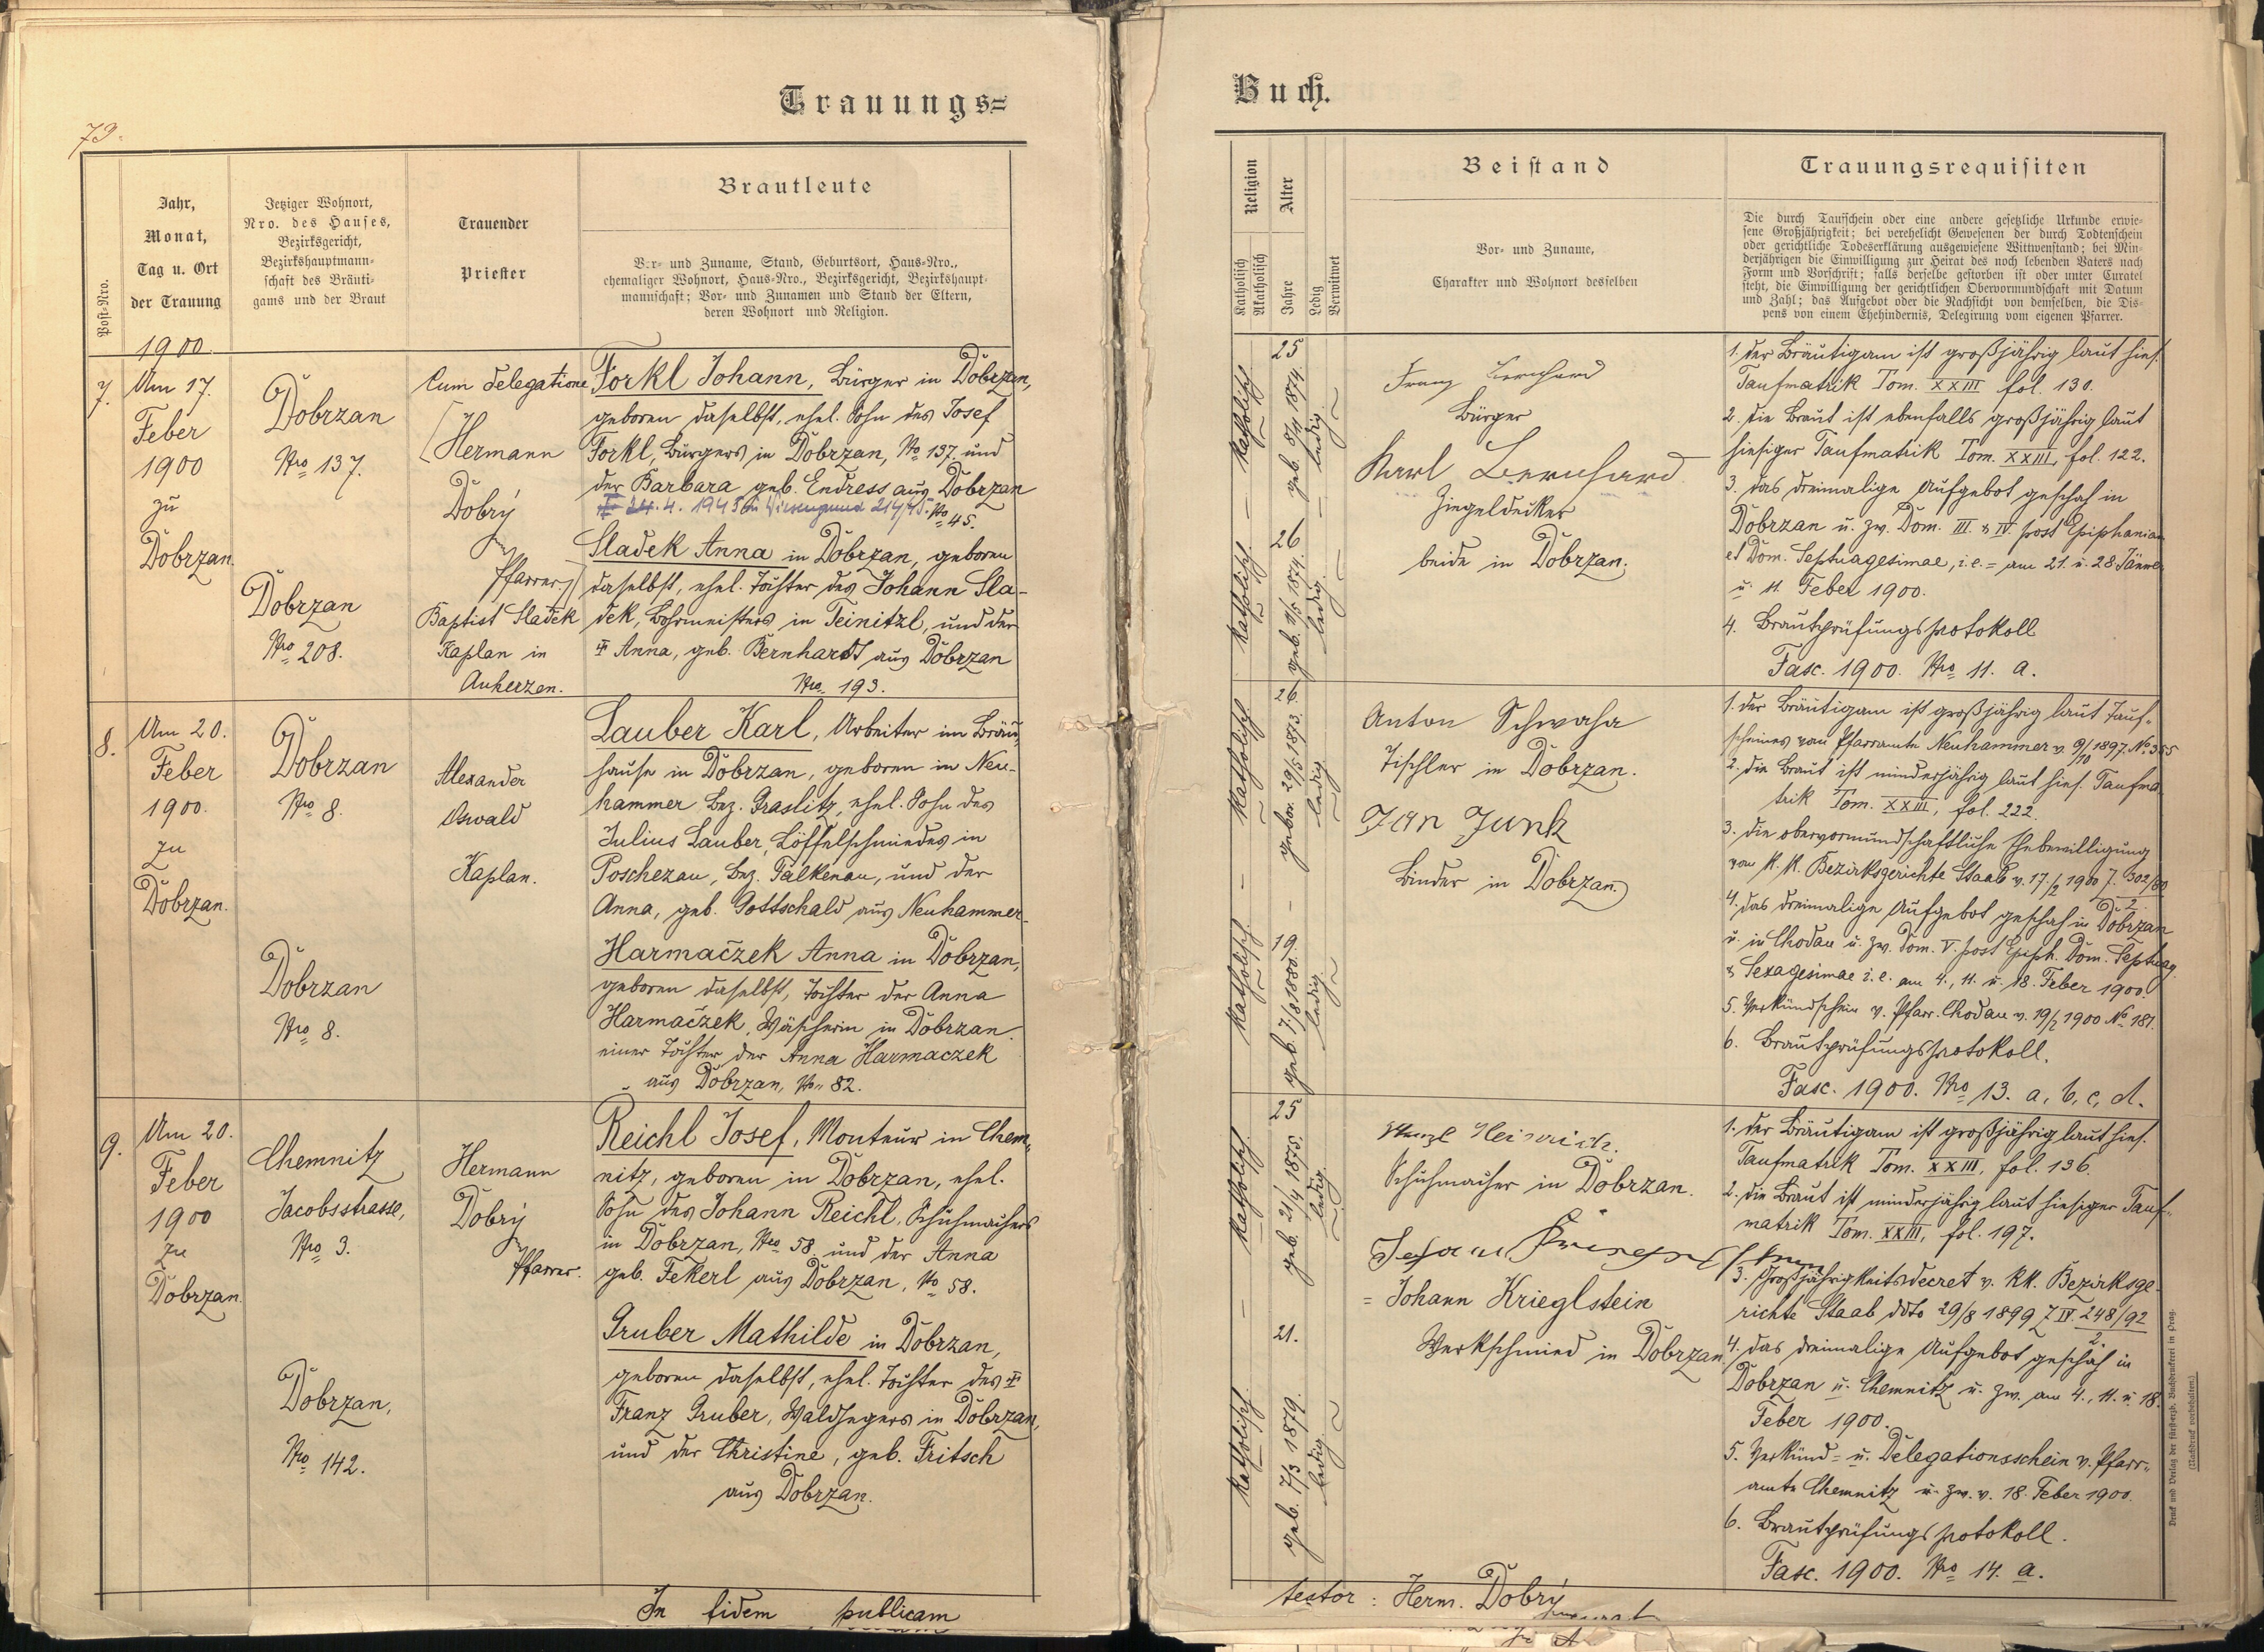 Trauungs=
73.
Post-Nro.
Jahr,
Monat,
Tag u. Ort
der Trauung
Jetziger Wohnort,
Nro. des Hauses,
Bezirksgericht,
Bezirkshauptmann-
schaft des Bräuti-
gams und der Braut
Trauender
Priester
Brautleute
Vor- und Zuname, Stand, Geburtsort, Haus-Nro.,
ehemaliger Wohnort, Haus-Nro., Bezirksgericht, Bezirkshaupt-
mannschaft; Vor- und Zunamen und Stand der Eltern,
deren Wohnort und Religion.
1900.
7.
Am 17.
Feber
1900
zu
Dobrzan.
Dobrzan
Nro 137.
Dobrzan
Nro 208.
Cum delegatione
Hermann
Dobrý
Pfarrer
Baptist Sladek
Kaplan in
Auherzen.
Forkl Johann, Bürger in Dobrzan,
geboren daselbst, ehel. Sohn des Josef
Forkl, Bürgers in Dobrzan, No 137. und
der Barbara geb. Endress aus Dobrzan
No 45.
4. 1945 in Wiesengrund 214/45.
Sladek Anna in Dobrzan, geboren
daselbst, ehel. Tochter des Johann Sla-
dek, Bohrmeisters in Teinitzl, und der
Anna, geb. Bernhardt aus Dobrzan
Nro. 193.
8.
Am 20.
Feber
1900.
zu
Dobrzan.
Dobrzan
Nro 8.
Dobrzan
Nro 8.
Alexander
Oswald
Kaplan.
Lauber Karl, Arbeiter im Bräu-
hause in Dobrzan, geboren in Neu-
hammer Bez. Graslitz, ehel. Sohn des
Julius Lauber, Löffelschmiedes in
Poschezau, Bez. Falkenau, und der
Anna, geb. Gottschald aus Neuhammer.
Harmačzek Anna in Dobrzan,
geboren daselbst, Tochter der Anna
Harmačzek, Wäscherin in Dobrzan
einer Tochter der Anna Harmaczek
aus Dobrzan, No 82.
9.
Am 20.
Feber
1900
zu
Dobrzan.
Chemnitz
Jacobsstrasse,
Nro 3.
Dobrzan,
Nro 142.
Hermann
Dobrý
Pfarrer.
Reichl Josef, Monteur in Chem-
nitz, geboren in Dobrzan, ehel.
Sohn des Johann Reichl, Schuhmachers
in Dobrzan, Nro 58. und der Anna
geb. Fekerl aus Dobrzan, No 58.
Gruber Mathilde in Dobrzan,
geboren daselbst, ehel. Tochter des
Franz Gruber, Waldhegers in Dobrzan,
und der Christine, geb. Fritsch
aus Dobrzan.
In fidem publicam
Buch.
Religion
Katholisch
Akatholisch
Alter
Jahre
Ledig
Verwitwet
Beistand
Vor- und Zuname,
Charakter und Wohnort desselben
Trauungsrequisiten
Die durch Taufschein oder eine andere gesetzliche Urkunde erwie-
sene Großjährigkeit; bei verehelicht Gewesenen der durch Todtenschein
oder gerichtliche Todeserklärung ausgewiesene Wittwenstand; bei Min-
derjährigen die Einwilligung zur Heirat des noch lebenden Vaters nach
Form und Vorschrift; falls derselbe gestorben ist oder unter Curatel
steht, die Einwilligung der gerichtlichen Obervormundschaft mit Datum
und Zahl; das Aufgebot oder die Nachsicht von demselben, die Dis-
pens von einem Ehehindernis, Delegirung vom eigenen Pfarrer.
Katholisch
25
geb. 8/4 1874.
ledig
Katholisch
26
geb. 1/5 1874.
ledig
Franz Bernhard
Bürger
Karl Bernhard
Ziegeldecker
beide in Dobrzan.
1. der Bräutigam ist großjährig laut hies.
Taufmatrik Tom. XXIII fol. 130.
2. die Braut ist ebenfalls großjährig laut
hiesiger Taufmatrik Tom. XXIII, fol. 122.
3. das dreimalige Aufgebot geschah in
Dobrzan u. zw. Dom. III. & IV. post Epiphaniam
et Dom. Septuagesimae, i.e. = am 21. u. 28 Jänner
u. 11. Feber 1900.
4. Brautprüfungsprotokoll
Fasc. 1900. Nro 11. a.
Katholisch
26.
gebor. 29/5 1873.
ledig
Katholisch.
19.
geb. 7/8 1880.
ledig
Anton Schwaha
Tischler in Dobrzan.
Jan Junk
Binder in Dobrzan.
1. der Bräutigam ist großjährig laut Tauf-
scheines vom Pfarramte Neuhammer v. 9/10 1897. No 355
2. die Braut ist minderjährig laut hies. Taufma-
trik Tom. XXIII, fol. 222.
3. die obervormundschaftliche Ehebewilligung
vom K. K. Bezirksgerichte Staab v. 17./2 1900 7. 302/80
2
4. das dreimalige Aufgebot geschah in Dobrzan
u. in Chodau u. zw. Dom. V. post Epiph. Dom. Septuag.
& Sexagesimae i.e. am 4., 11. u. 18. Feber 1900.
5. Verkündschein v. Pfarr. Chodau v. 19/2 1900 No 181.
6. Brautprüfungsprotokoll.
Fasc. 1900. Nro 13. a, b, c, d.
Katholisch
25
geb. 21/4 1875.
ledig
Katholisch.
21.
geb. 7/3 1879.
ledig
Heinrich.
Schuhmacher in Dobrzan.
= Johann Krieglstein
Werkschmied in Dobrzan.
1. der Bräutigam ist großjährig laut hies.
Taufmatrik Tom. XXIII, fol. 136.
2. die Braut ist minderjährig laut hiesiger Tauf-
matrik Tom. XXIII, fol. 197.
3. Großjährigkeitsdecret v. KK. Bezirksge-
richte Staab ddto 29/8 1899 Z IV. 248/92
2.
4. das dreimalige Aufgebot geschah in
Dobrzan u. Chemnitz u. zw. am 4., 11. u. 18.
Feber 1900.
5. Verkünd- u. Delegationsschein v. Pfarr-
amte Chemnitz u. zw. v. 18. Feber 1900.
6. Brautprüfungsprotokoll.
Fasc. 1900. Nro 14. a.
Druck und Verlag der fürsterzb. Buchdruckerei in Prag.
(Nachdruck vorbehalten.)
testor : Herm. Dobrý